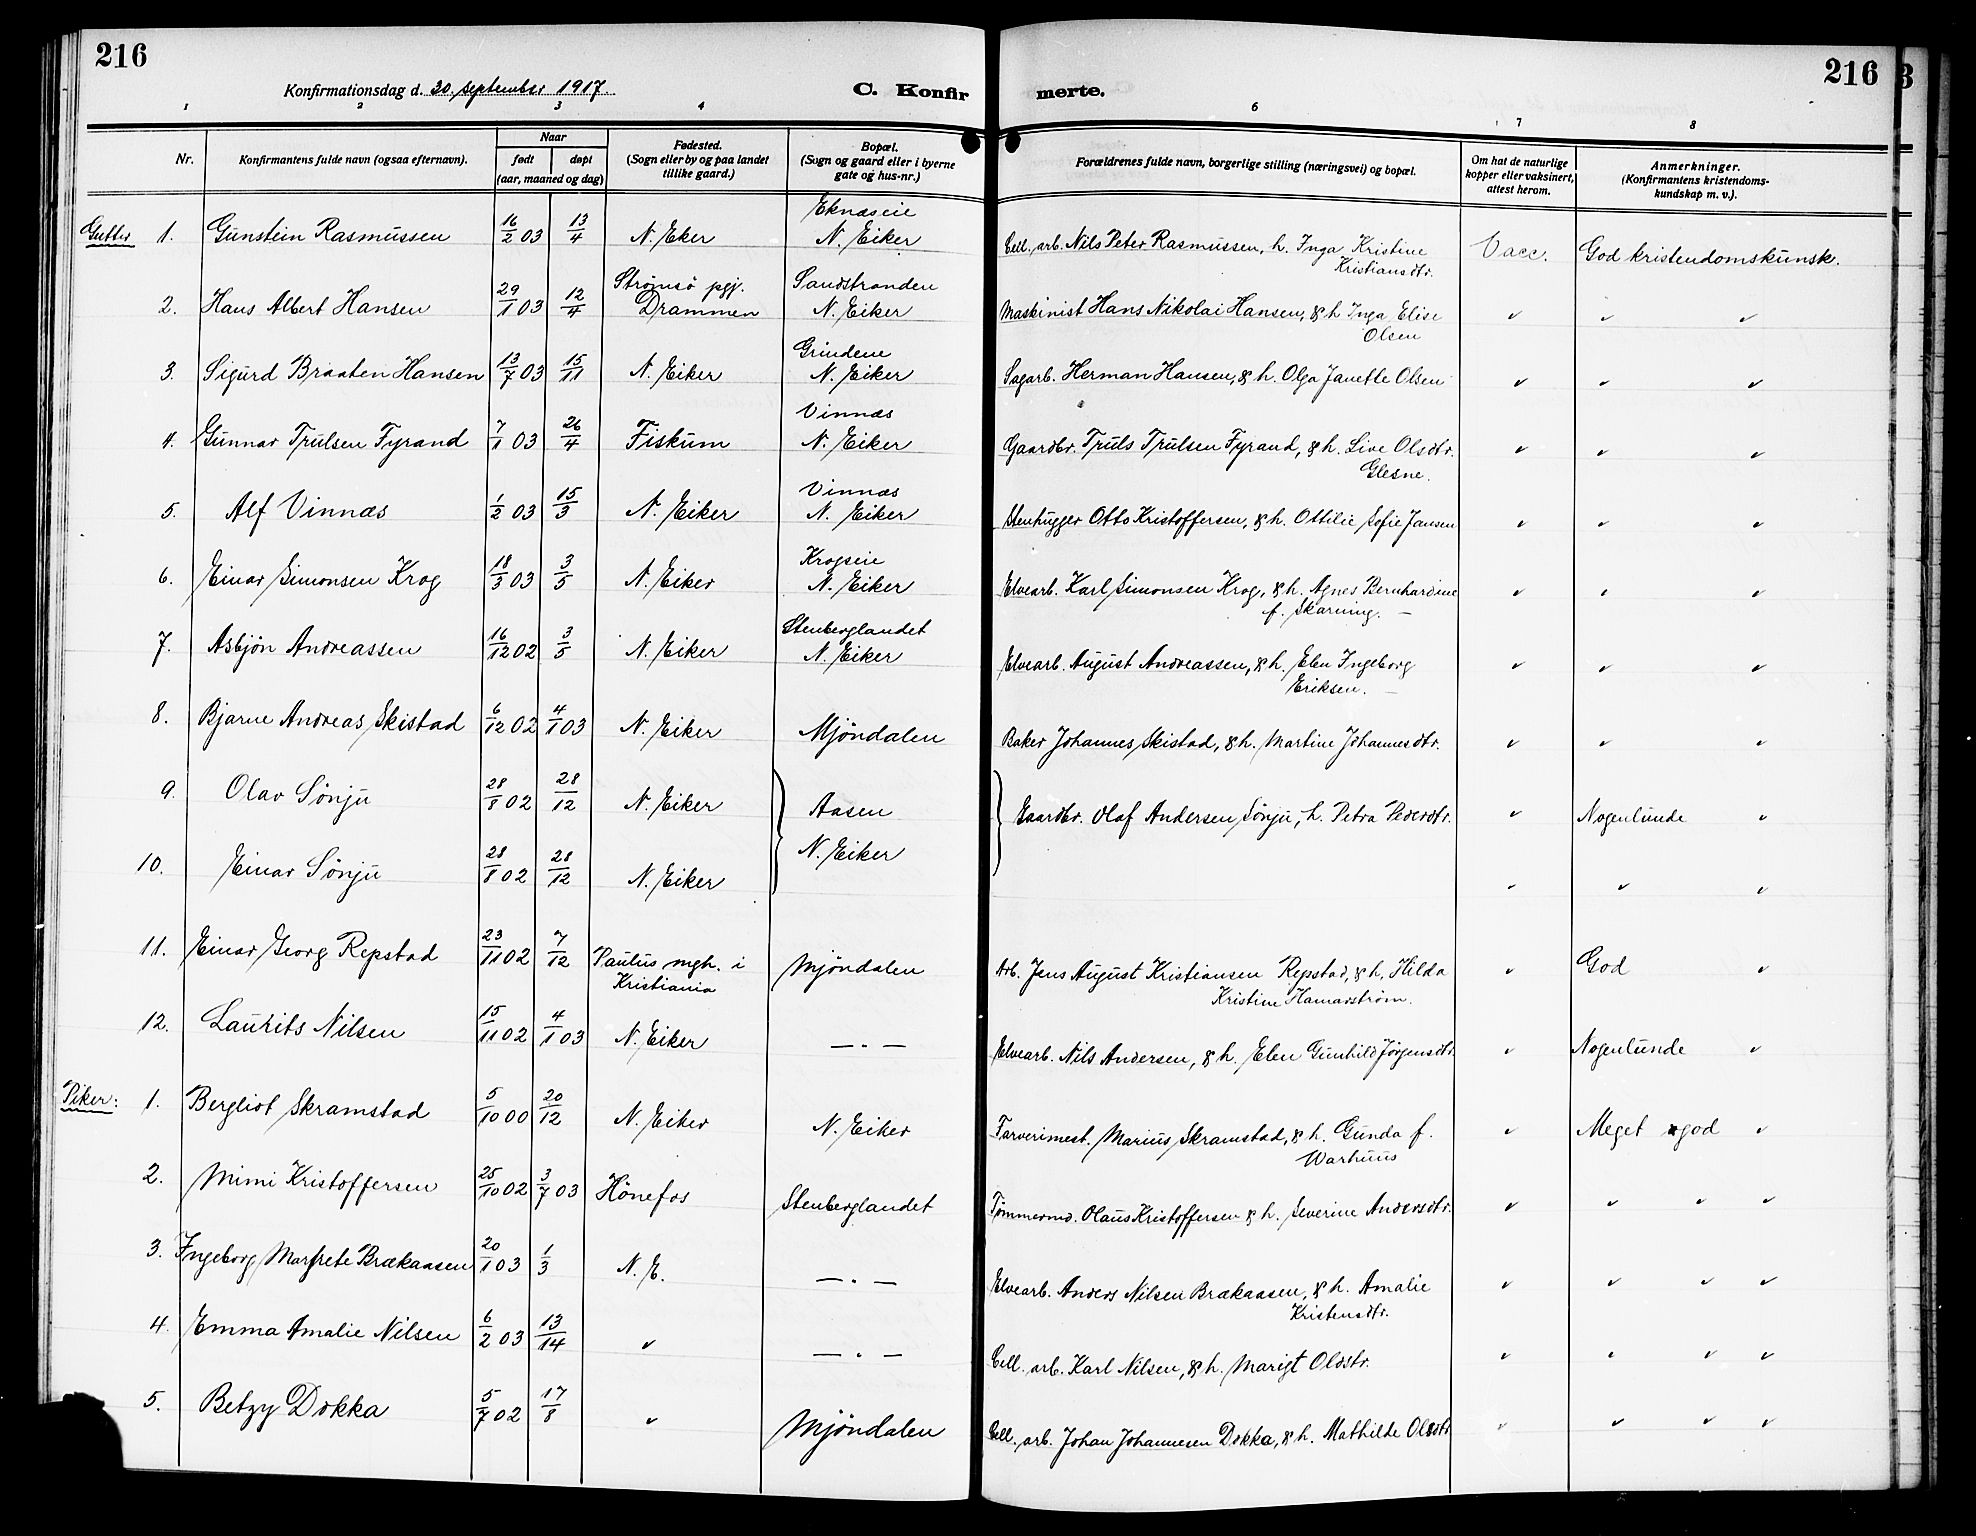 216
216
Konfirmationsdag d. 30. september 1917.
C. Konfir merte.
1 2 3 4 6 7 8
Nr. Konfirmantens fulde navn (ogsaa efternavn). Naar født døpt (aar, maaned og dag) Fødested. (Sogn eller by og paa landet tillike gaard.) Bopæl. (Sogn og gaard eller i byerne gate og hus-nr.) Forældrenes fulde navn, borgerlige stilling (næringsvei) og bopæl. Om hat de naturlige kopper eller vaksinert, attest herom. Anmerkninger. (Konfirmantens kristendomskundskap m. v.).
Gutter 1. Gunstein Rasmussen 16/2 03 13/4 N. Eker Eknæseie N. Eiker Cell. arb. Nils Peter Rasmussen, h. Inga Kristine Kristiansdtr. Vacc. God kristendomskunsk.
2. Hans Albert Hansen 29/1 03 12/4 Strømsø pgj. Drammen Sandstranden N. Eiker Maskinist Hans Nikolai Hansen, & h Inga Elise Olsen " " "
3. Sigurd Braaten Hansen 13/7 03 15/11 N. Eiker Grindene N. Eiker Sagarb. Herman Hansen, & h. Olga Janette Olsen " " "
4. Gunnar Trulsen Fyrand 7/1 03 26/4 Fiskum Vinnæs N. Eiker Gaardbr. Truls Trulsen Fyrand, & h. Live Olsdtr. Glesne. " " "
5. Alf Vinnæs 1/2 03 15/3 N. Eiker Vinnæs N. Eiker Stenhugger Otto Kristoffersen, & h. Ottilie Sofie Jansen " " "
6. Einar Simonsen Krog 18/3 03 3/5 N. Eiker Krogseie N. Eiker Elvearb. Karl Simonsen Krog, & h. Agnes Bernhardine f. Skarning. — " " "
7. Asbjøn Andreassen 16/12 02 3/5 N. Eiker Stenberglandet N. Eiker Elvearb. August Andreassen, & h. Elen Ingeborg Eriksen. — " " "
8. Bjarne Andreas Skistad 6/12 02 4/1 03 N. Eiker Mjøndalen Baker Johannes Skistad, & h. Martine Johannesdtr. " " "
9. Olav Sønju 28/8 02 28/12 N. Eiker Aasen Gaardbr. Olaf Andersen Sønju, h. Petra Pedersdtr. " Nogenlunde "
10. Einar Sønju 28/8 02 28/12 N. Eiker N. Eiker " " "
11. Einar Georg Repstad 23/11 02 7/12 Paulus mgh. i Kristiania Mjøndalen Arb. Jens August Kristiansen Repstad, & h. Hilda Kristine Hamarstrøm. " God "
12. Laurits Nilsen 15/11 02 4/1 03 N. Eiker —"— Elvearb. Nils Andersen, & h. Elen Gunhild Jørgensdtr. " Nogenlunde "
Piker: 1. Bergliot Skramstad 5/10 00 20/12 N. Eiker N. Eiker Farverimest. Marius Skramstad, & h. Gunda f. Warhuus " Meget god "
2. Mimi Kristoffersen 25/10 02 3/7 03 Hønefos Stenberglandet Tømmermd. Olaus Kristoffersen & h. Severine Andersdtr. " " " "
3. Ingeborg Margrete Brækaasen 20/1 03 1/3 N. E. —"— Elvearb. Anders Nilsen Brækaasen, & h. Amalie Kristensdtr. " " " "
4. Emma Amalie Nilsen 6/2 03 13/14 " —"— Cell. arb. Karl Nilsen, & h. Marigt Olsdtr. " " " "
5. Betzy Dokka 5/7 02 17/8 " Mjøndalen Cell. arb. Johan Johannesen Dokka, & h. Mathilde Olsdtr. " " " "